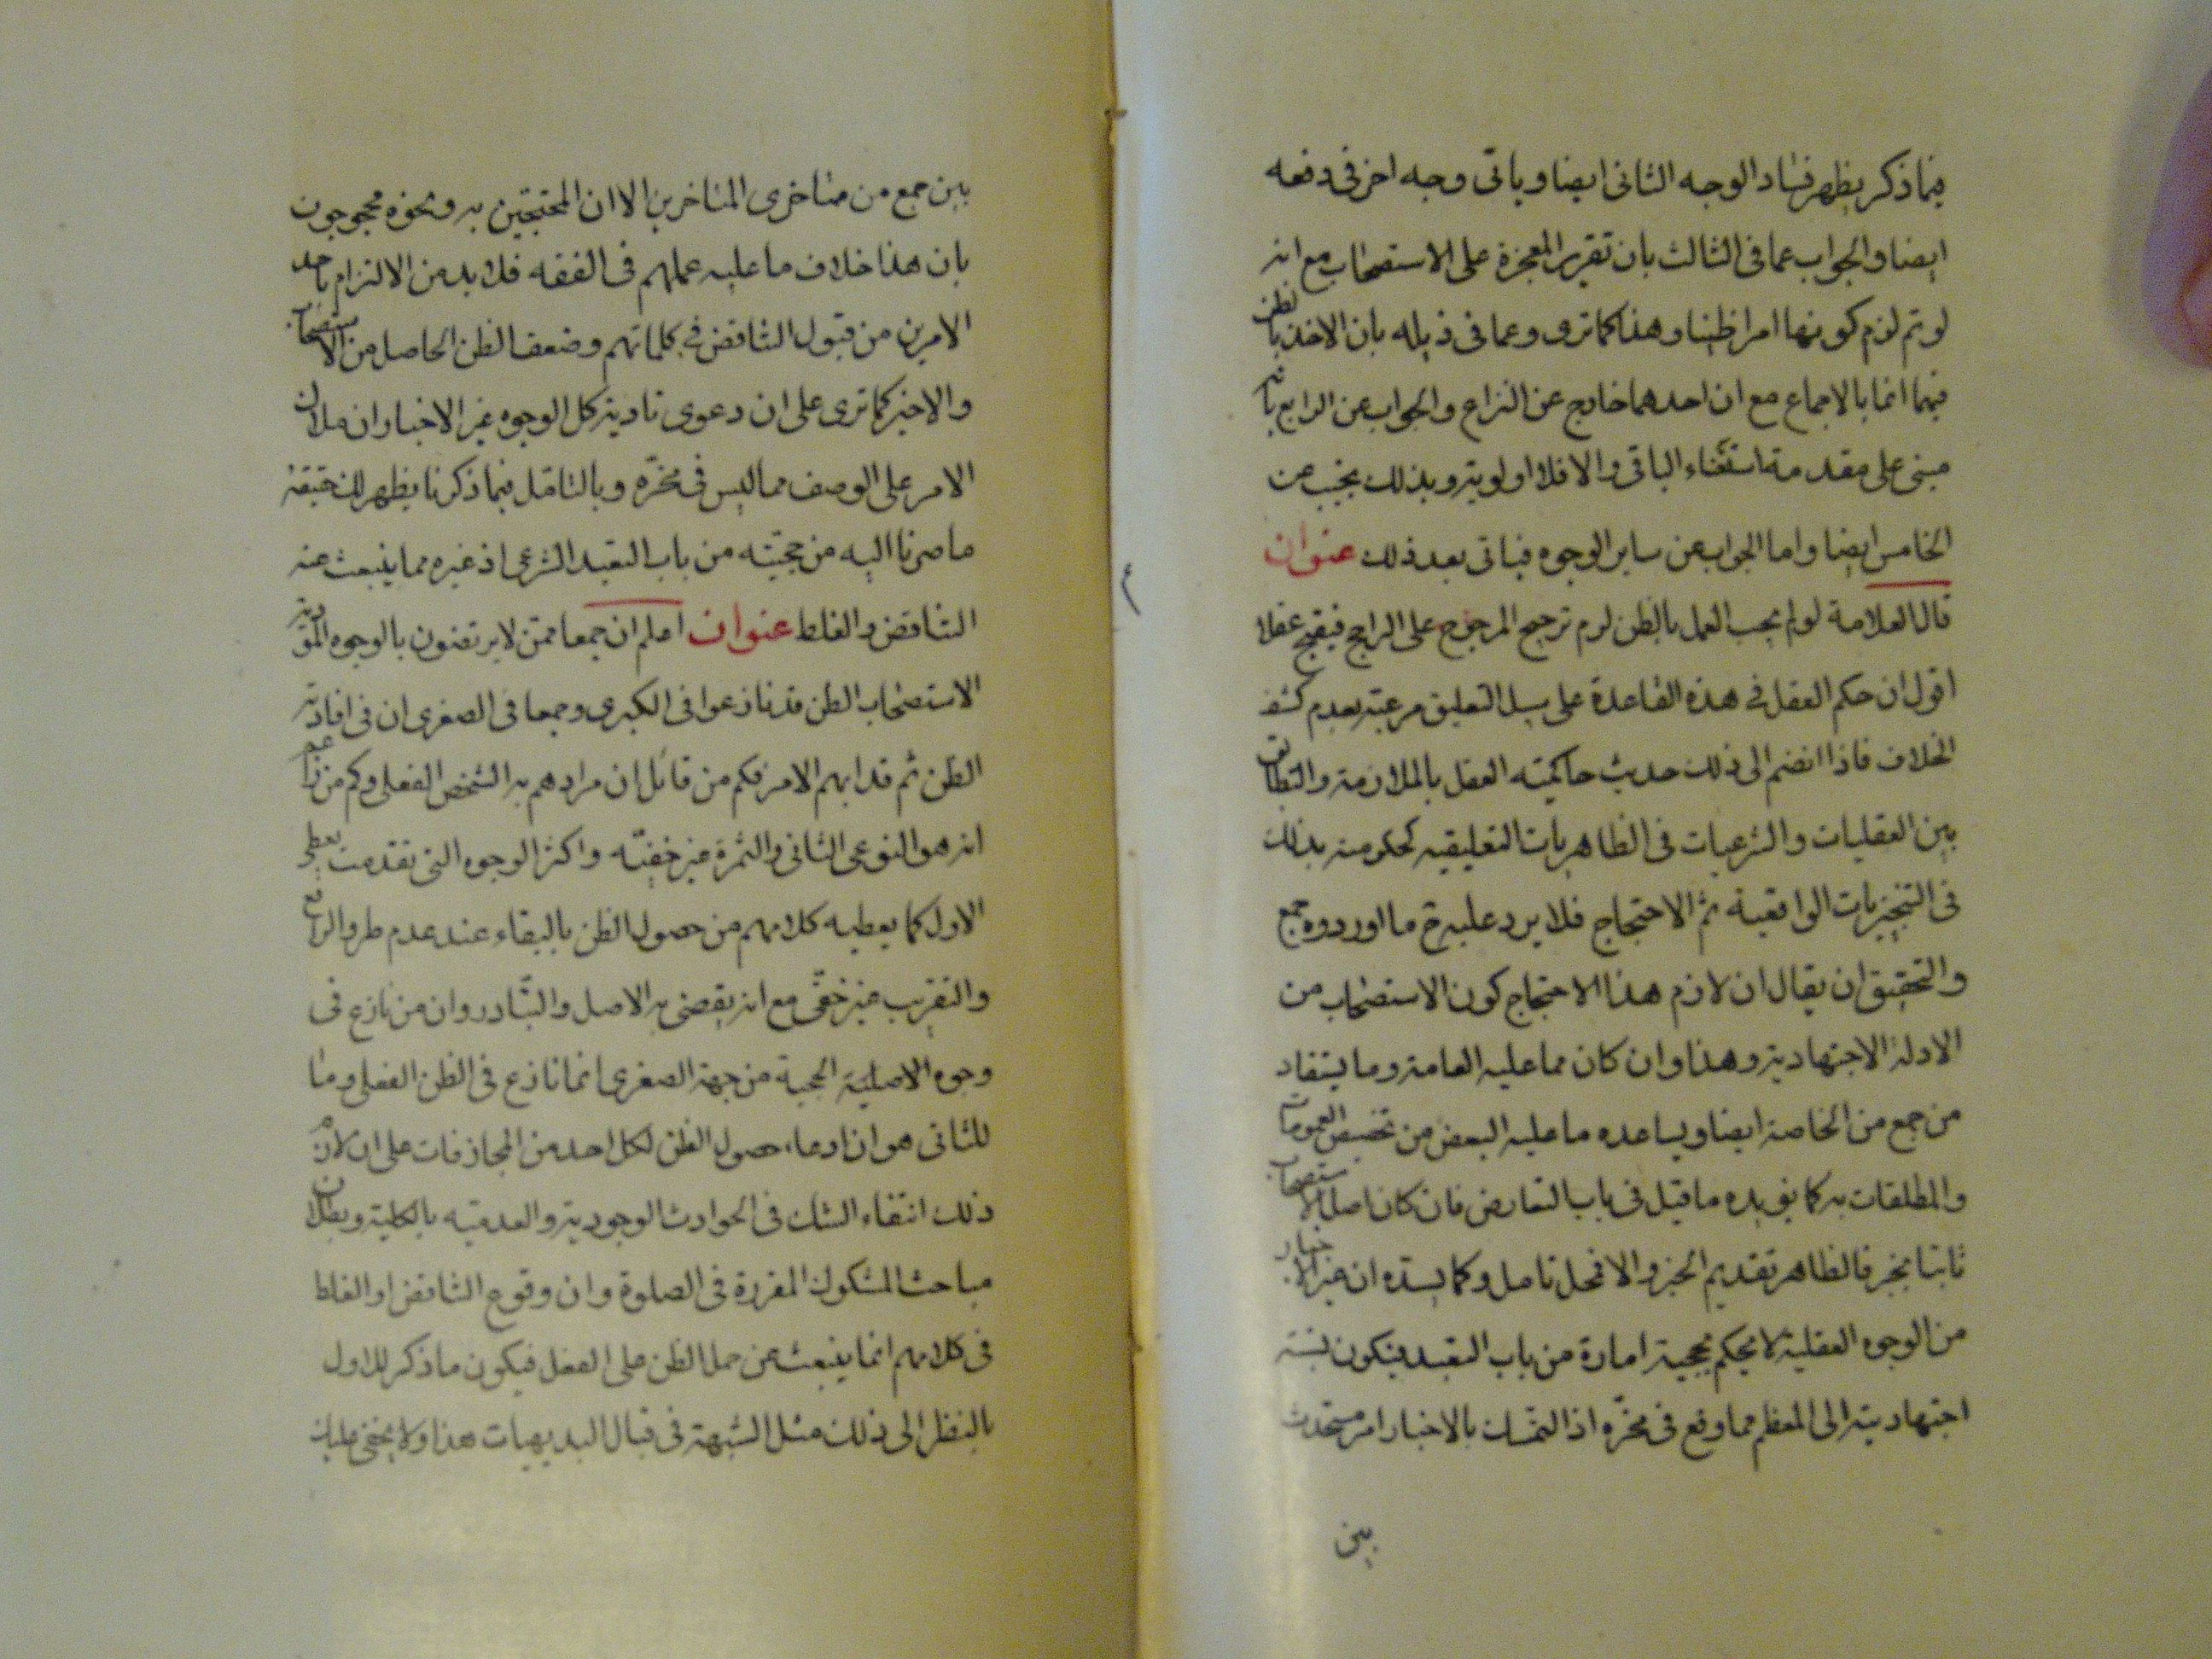 فيما ذكر يظهر فساد الوجه الثانى ايضا وياتى وجه اخر فى دفعه
ايضا والجواب عما فى الثالث بان تقرير المعجزة على الاستصحاب مع انه
لو تم لزم كونها امرا ظنيا وهذا كما ترى وعما فى ذيله بان الاخذ بالظن
فيهما انما بالاجماع مع ان احدهما خارج عن النزاع والجواب عن الرابع بانه
مبنى على مقدمة استغناء الباقى والا فلا اولوية وبذلك يجيب عن
الخامس ايضا واما الجواب عن ساير الوجوه فياتى بعد ذلك عنوان
قال العلامة لو لم يجب العمل بالظن لزم ترجيح المرجوح على الراجح فيقبح عقلا
اقول ان حكم العقل فى هذه القاعدة على سبيل التعليق مرعية بعدم كشف
الخلاف فاذا انضم الى ذلك حديث حاكمية العقل بالملازمة والتطابق
بين العقليات والشرعيات فى الظاهريات التعليقيه كحكومته بذلك
فى التنجيزيات الواقعية تم الاحتجاج فلا يرد عليه ح ما اورده جمع
والتحقيق ان يقال ان لازم هذا الاحتجاج كون الاستصحاب من
الادلة الاجتهادية وهذا وان كان مما عليه العامة وما يستفاد
من جمع من الخاصة ايضا ويساعده ما عليه البعض من تخصيص العمومات
والمطلقات به كما يؤيده ما قيل فى باب التعارض فان كان اصل الاستصحاب
ثابتا بخبر فالظاهر تقديم الخبر والا فمحل تامل وكما يسدده ان غير الاخبار
من الوجوه العقلية لا يحكم بحجية امارة من باب التعبد فيكون نسبة
اجتهاديته الى المعظم مما وقع فى محزه اذ التمسك بالاخبار امر مستحدث
بين
بين جمع من متاخرى المتاخرين الا ان المحتجين به ونحوه محجوجون
بان هذا خلاف ما عليه عملهم فى الفقه فلا بد من الالتزام باحد
الامرين من قبول التناقض فى كلماتهم وضعف الظن الحاصل من الاستصحاب
والاخير كما ترى على ان دعوى تادية كل الوجوه غير الاخبار ان ملاك
الامر على الوصف مما ليس فى محزه وبالتامل فيما ذكرنا يظهر لك حقيقة
ما صرنا اليه من حجيته من باب التعبد الشرعى اذ غيره مما ينبعث عنه
التناقض والغلط عنوان اعلم ان جمعا ممن لا يرتضون بالوجوه المؤدية
الاستصحاب الظن قد نازعوا فى الكبرى وجمعا فى الصغرى ان فى افادته
الظن ثم قد ابهم الامر فكم من قائل ان مرادهم به الشخص الفعلى وكم من زاعم
انه هو النوعى الثانى والثمرة غير خفية واكثر الوجوه التى تقدمت يعطى
الاول كما يعطيه كلامهم من حصول الظن بالبقاء عند عدم طرو الرافع
والتقريب غير خفى مع انه يقضى به الاصل والتبادر وان من نازع فى
وجوه الاصلية الحجية من جهة الصغرى انما نازع فى الظن الفعلى وما
للثانى هو ان ادعاء حصول الظن لكل احد من المجازفات على ان لازم
ذلك انتفاء الشك فى الحوادث الوجودية والعدمية بالكلية وبطلان
مباحث الشكوك المقررة فى الصلوة وان وقوع التناقض او الغلط
فى كلامهم انما ينبعث عن حمل الظن على الفعل فيكون ما ذكر للاول
بالنظر الى ذلك مثل الشبهة فى قبال البديهيات هذا ولا يخفى عليك